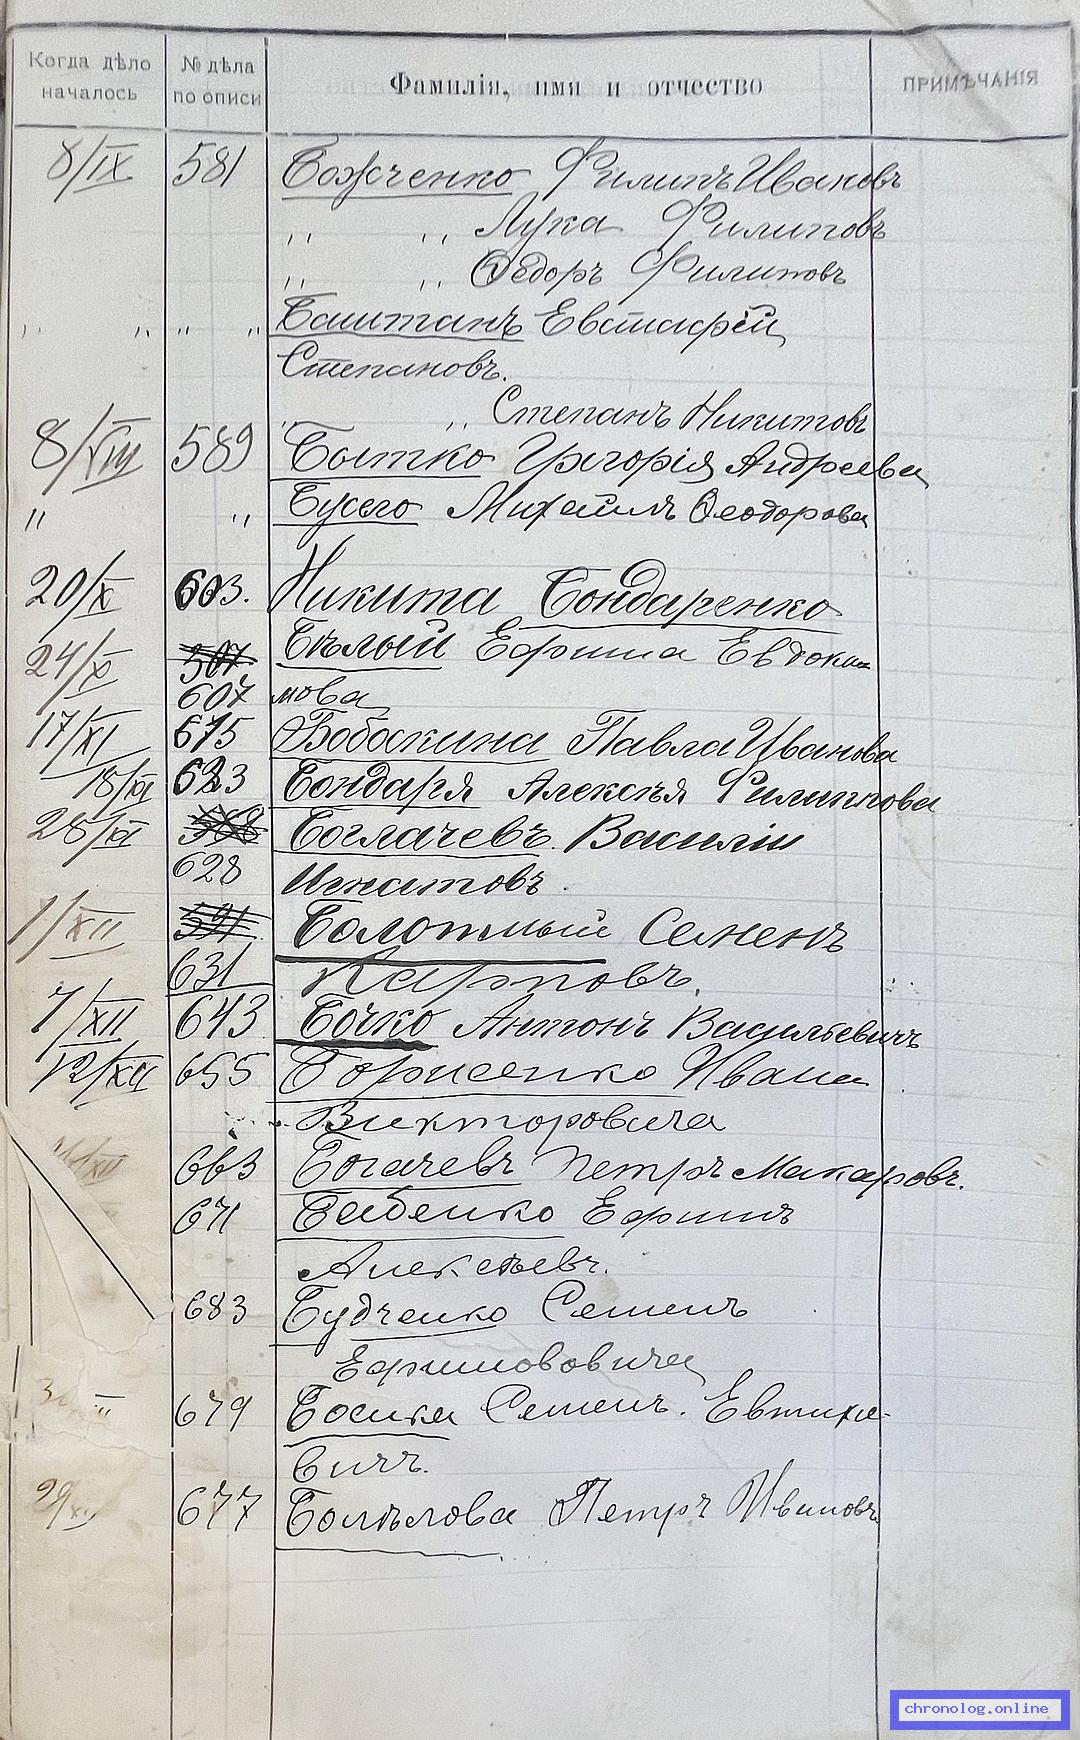 Когда дѣло началось
№ дѣла по описи
Фамилія, имя и отчество
ПРИМѢЧАНІЯ
8/IX 581 Божченко Филипъ Ивановъ
" " Лука Филиповъ
" " Ѳедоръ Филиповъ
" " " " Баштанъ Евстафій
Степановъ.
" " Степанъ Никитовъ
8/VIII 589 Бытко Григорія Андреева
" " Бусего Михаилъ Ѳеодорова
20/X 603. Никита Бондаренко
24/X 507 Бѣлый Ефима Евдоки
607 мова
17/XI 615 Бобоскина Павла Иванова
18/XI 623 Бондаря Алексѣя Филиппова
28/XI Боглачевъ Василій
628 Игнатовъ.
1/XII 591 Болотный Семенъ
631 Карповъ.
7/XII 643 Бочко Антонъ Васильевичъ
12/XII 655 Борисенко Ивана
Викторовича
663 Богачевъ Петръ Макаровъ.
671 Бабенко Ефимъ
Алексѣевъ.
683 Будченко Семенъ
Ефимововича
679 Босика Семенъ. Евтихе-
вичъ.
29/XII 677 Петръ Ивановъ
chronolog.online